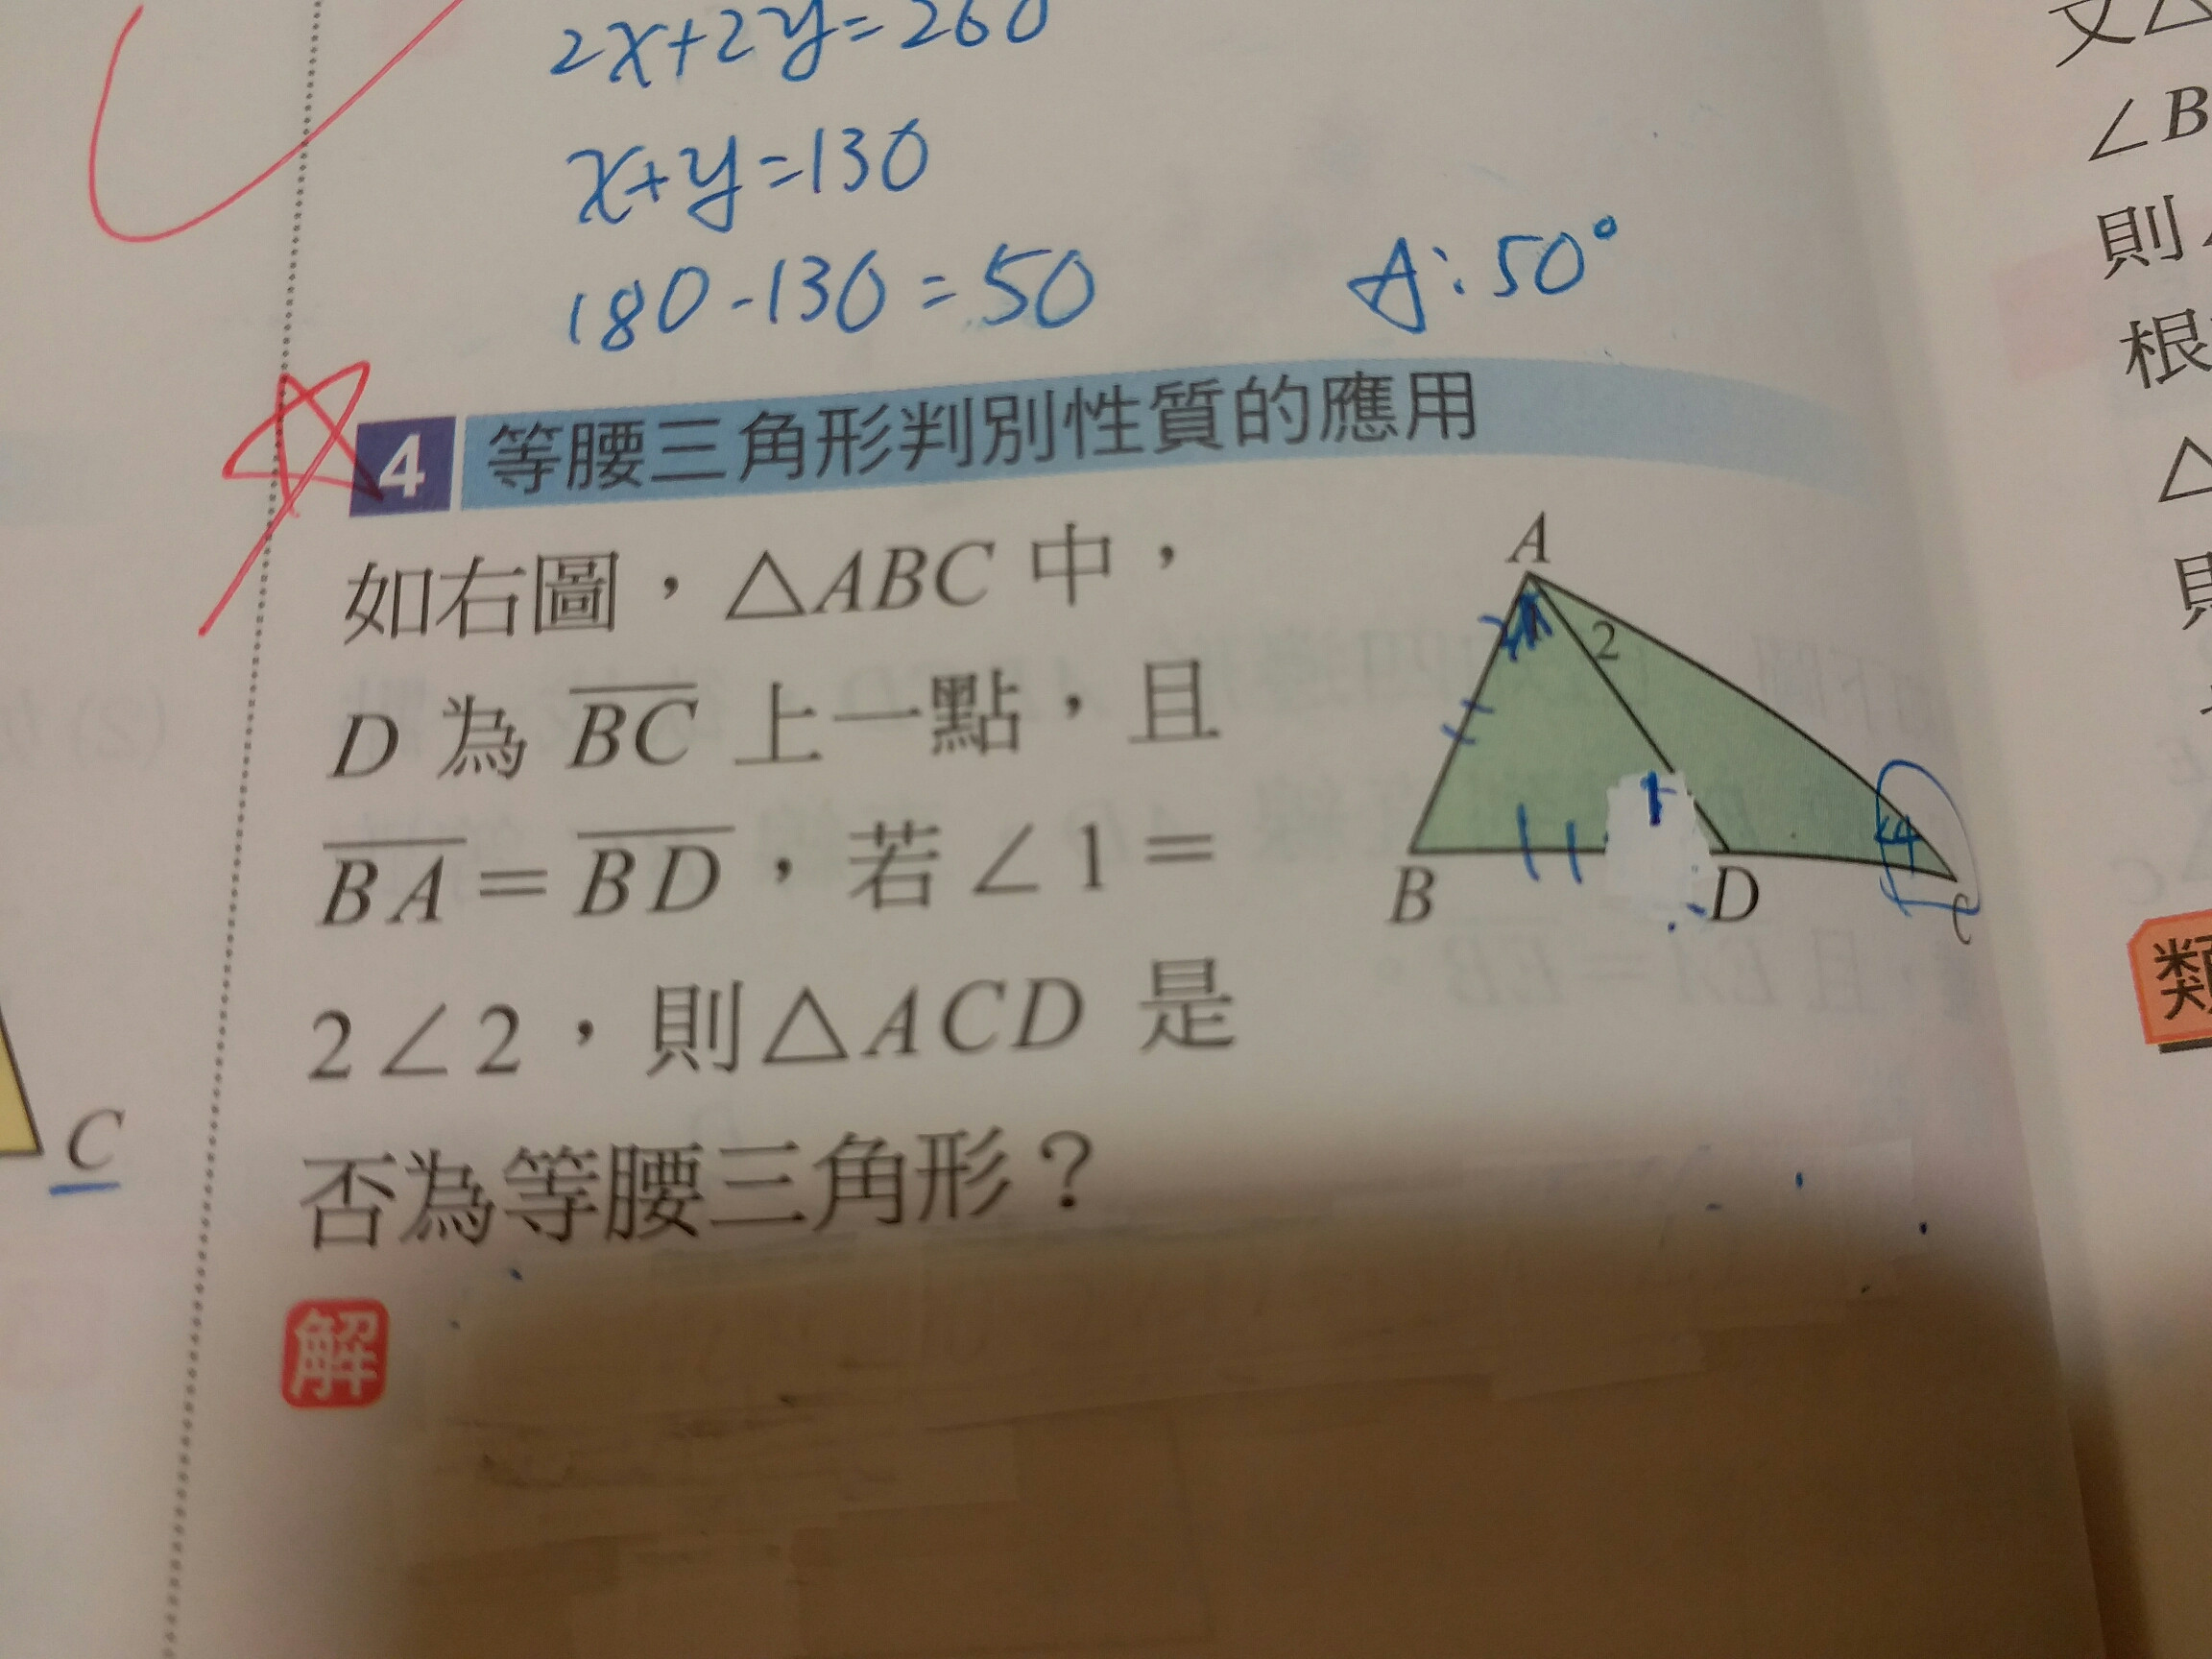 2x+2y=260
x+y=130
180-130=50 A:50°
4 等腰三角形判別性質的應用
如右圖，△ABC 中，
D 為 BC 上一點，且
BA=BD，若∠1=
2∠2，則△ACD 是
否為等腰三角形？
解
A
2
4
B
D
C
C
(2)
又△
∠B
則
根
△
類